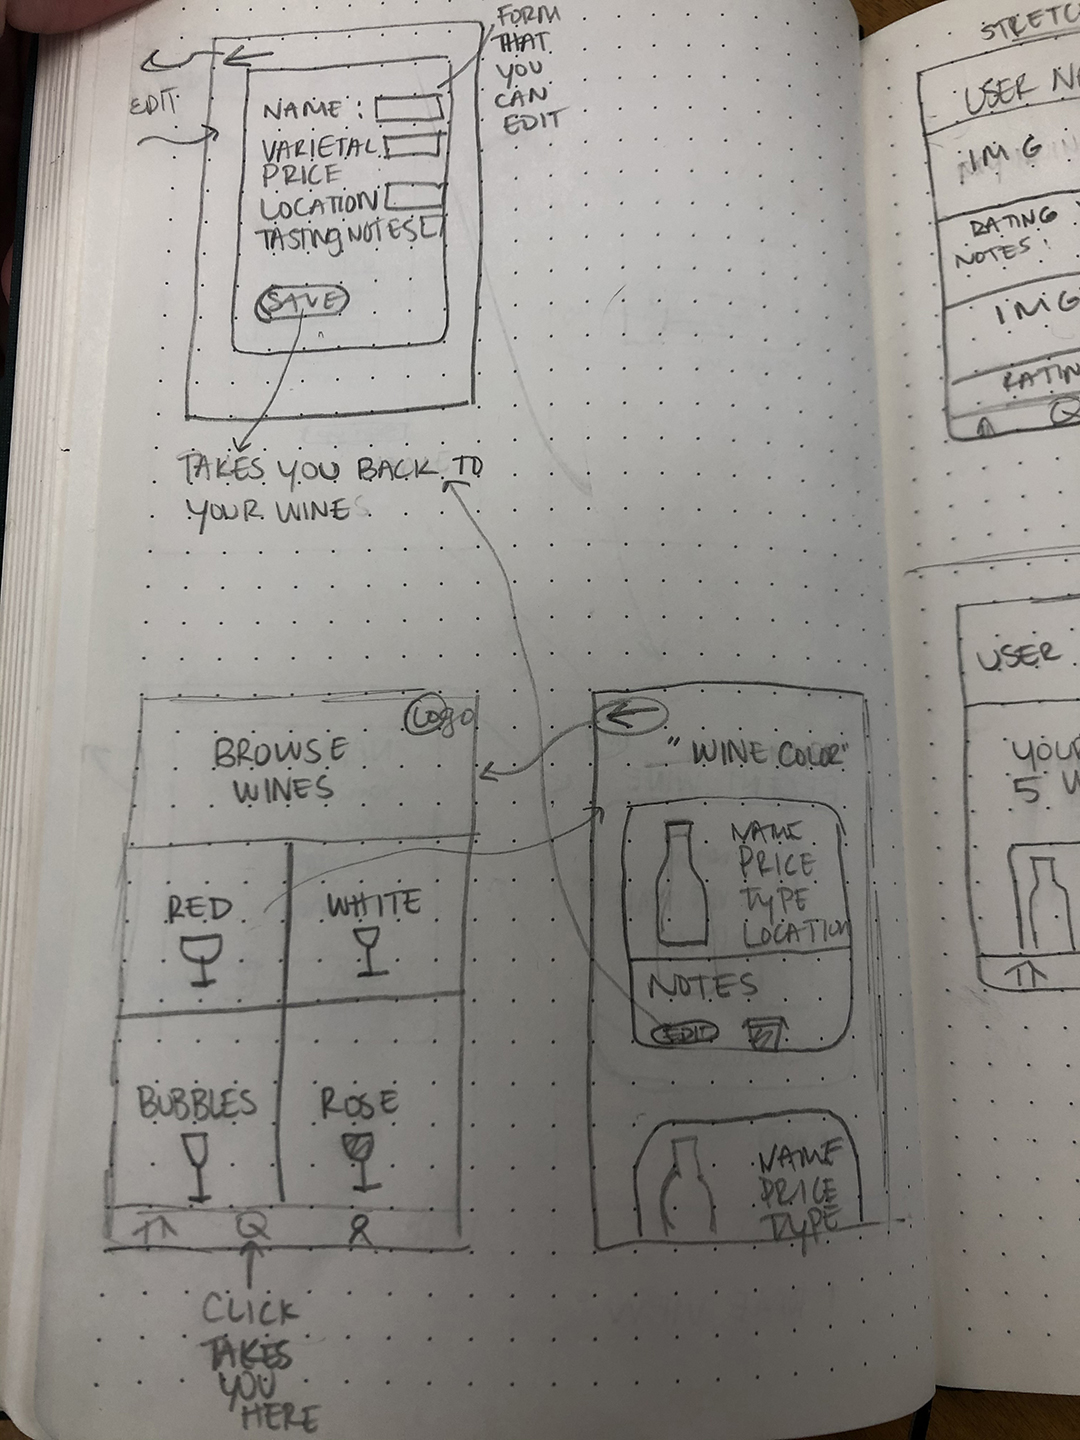 FORM
THAT
YOU
CAN
EDIT
EDIT
NAME :
VARIETAL
PRICE
LOCATION
TASTING NOTES
SAVE
TAKES YOU BACK TO
YOUR WINES
Logo
BROWSE
WINES
RED
WHITE
BUBBLES
ROSE
CLICK
TAKES
YOU
HERE
"WINE COLOR"
NAME
PRICE
TYPE
LOCATION
NOTES
EDIT
NAME
PRICE
TYPE
USER
IMG
RATING
NOTES:
IMG
USER
5